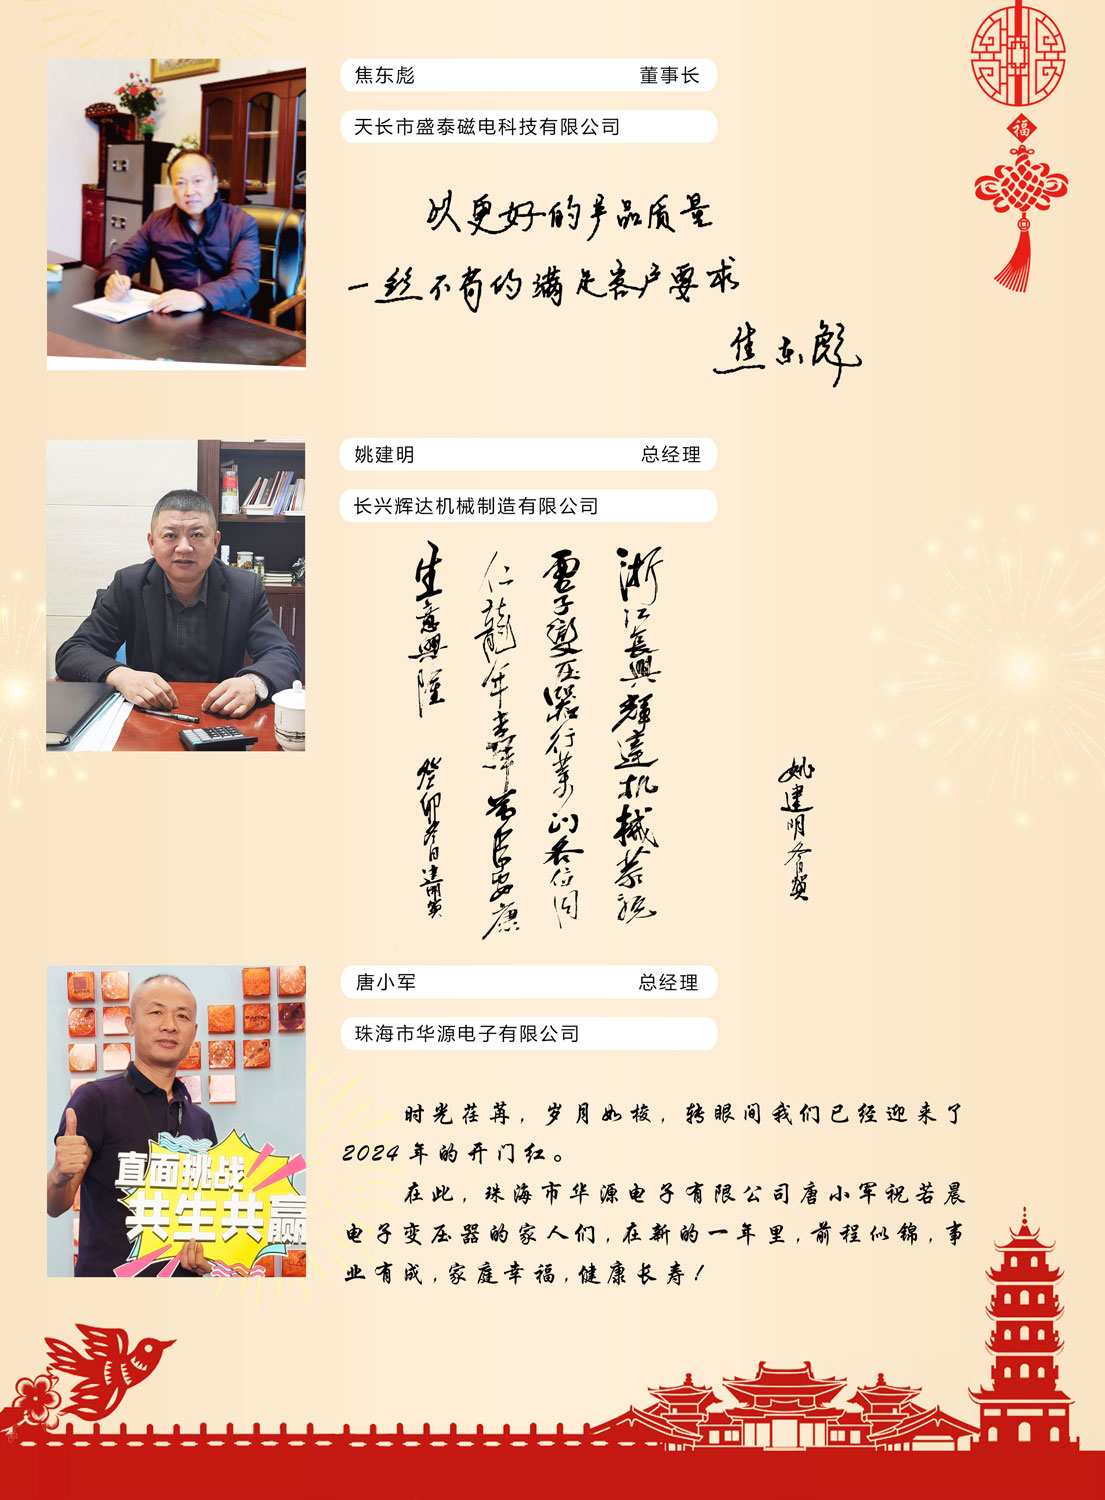 福
焦东彪 董事长
天长市盛泰磁电科技有限公司
以更好的产品质量
一丝不苟的满足客户要求
焦东彪
姚建明 总经理
长兴辉达机械制造有限公司
浙江長興輝達机械恭祝
電子變压器行業的各位同
仁龍年吉祥
安康
生意興隆
癸卯冬日建明贺
姚建明冬日贺
唐小军 总经理
珠海市华源电子有限公司
直面挑战
共生共赢
时光荏苒，岁月如梭，转眼间我们已经迎来了
2024年的开门红。
在此，珠海市华源电子有限公司唐小军祝若晨
电子变压器的家人们，在新的一年里，前程似锦，事
业有成，家庭幸福，健康长寿！